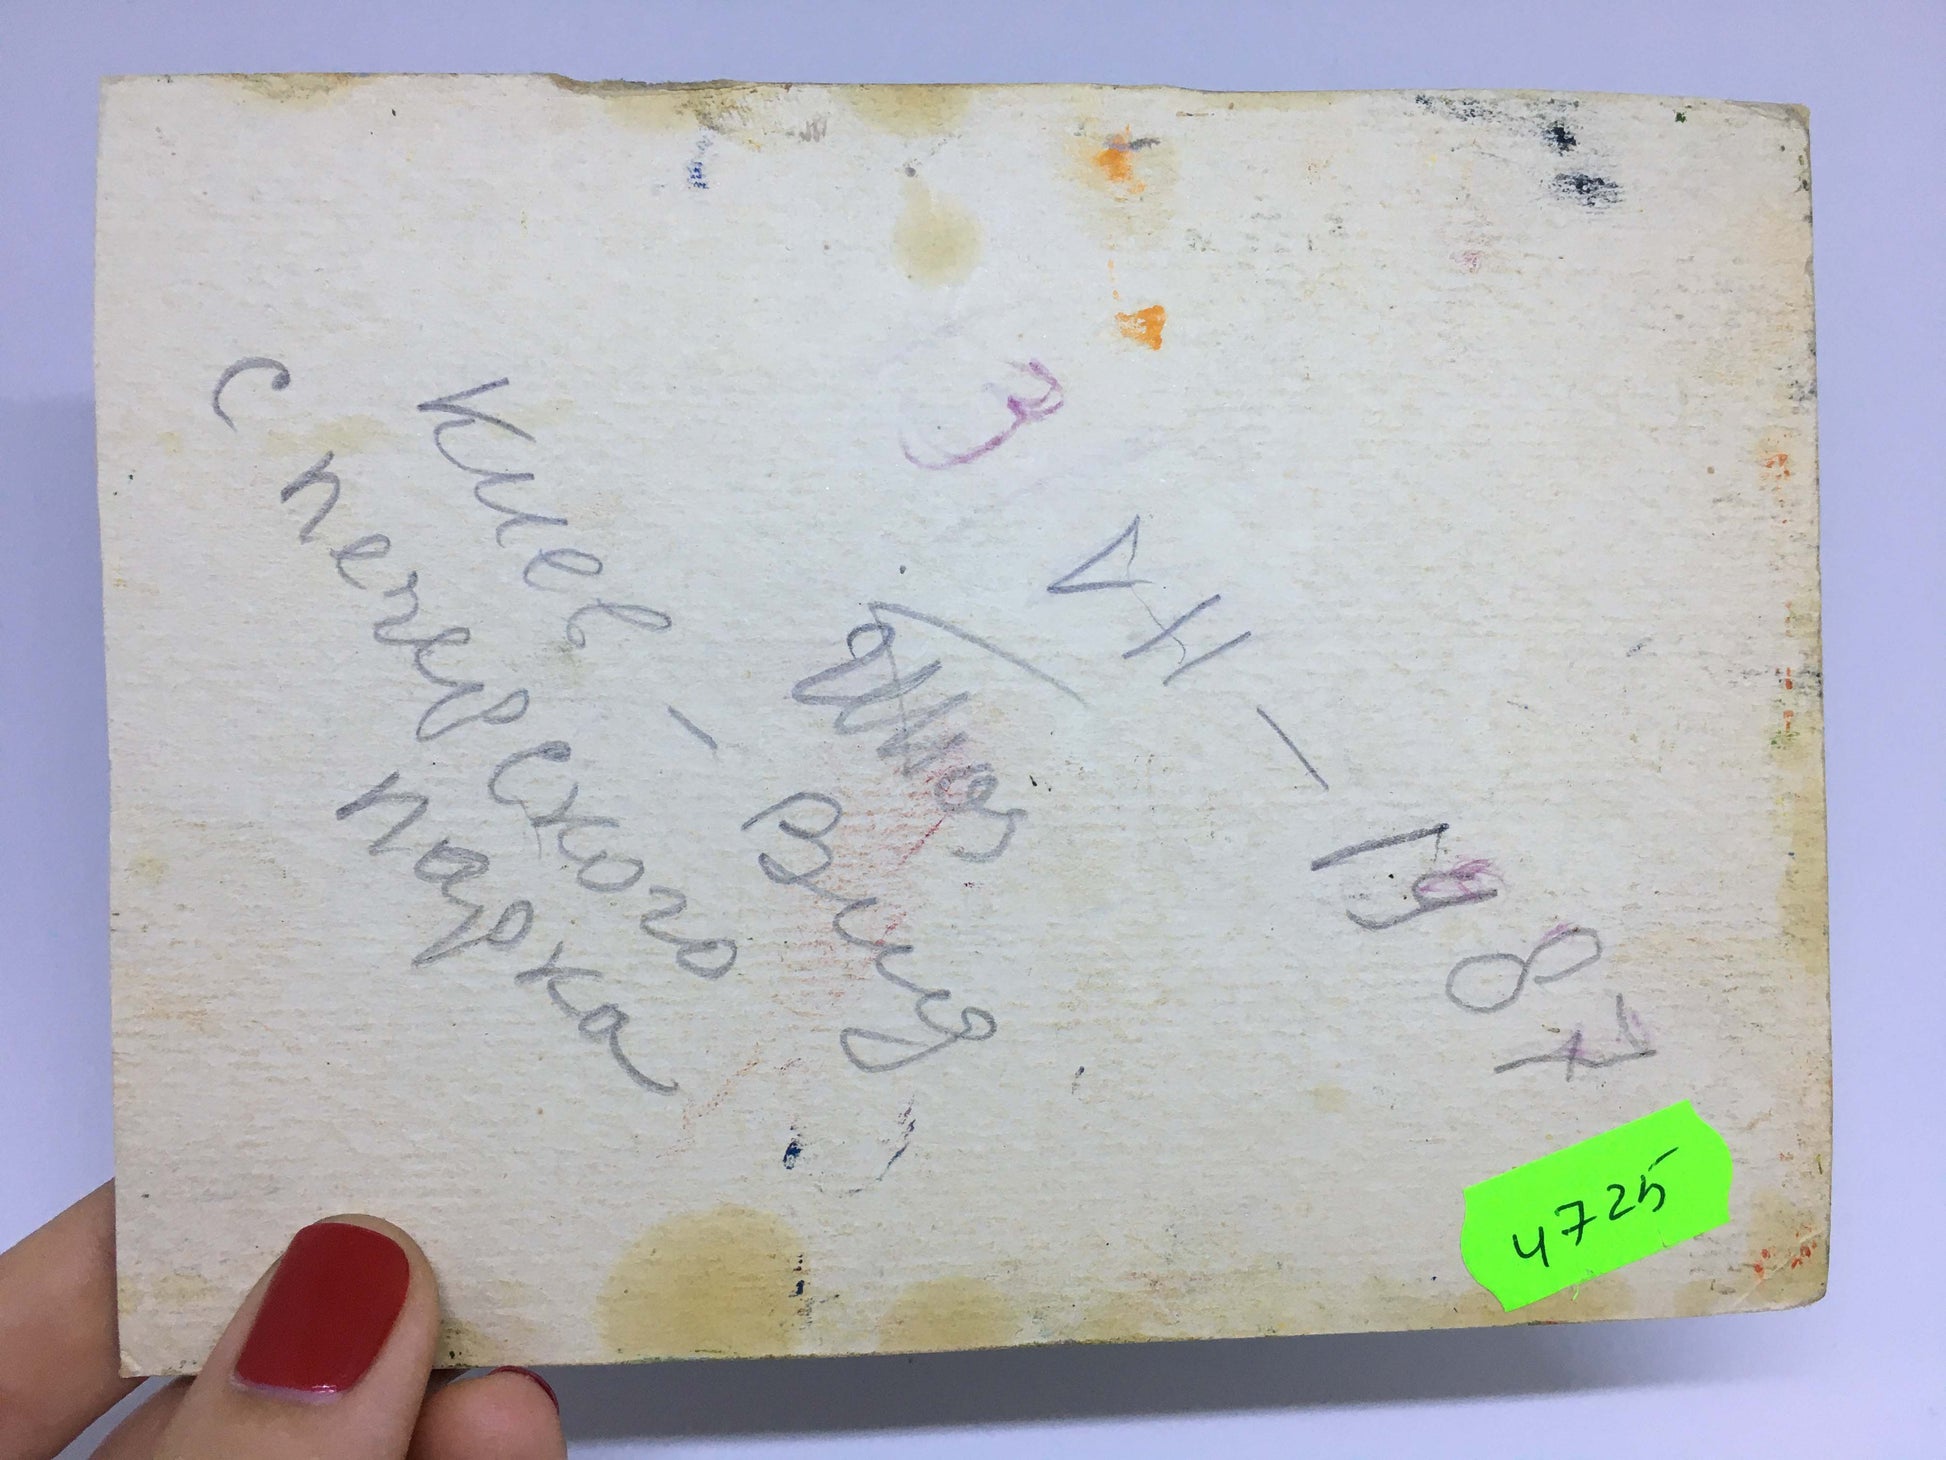 3 VII - 1987
Киев - Вид
с печерского
парка
4725